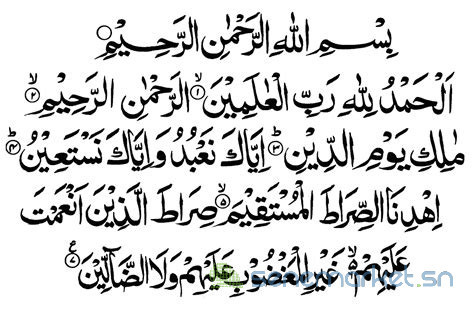 بِسْمِ اللهِ الرَّحْمٰنِ الرَّحِيْمِ
اَلْحَمْدُ لِلهِ رَبِّ الْعٰلَمِيْنَ ۙ﴿۱﴾ الرَّحْمٰنِ الرَّحِيْمِ ۙ﴿۲﴾
مٰلِكِ يَوْمِ الدِّيْنِ ؕ﴿۳﴾ اِيَّاكَ نَعْبُدُ وَاِيَّاكَ نَسْتَعِيْنُ ؕ﴿۴﴾
اِهْدِنَا الصِّرَاطَ الْمُسْتَقِيْمَ ۙ﴿۵﴾ صِرَاطَ الَّذِيْنَ اَنْعَمْتَ
عَلَيْهِمْ ۙ۬ غَيْرِ الْمَغْضُوْبِ عَلَيْهِمْ وَلَا الضَّآلِّيْنَ ﴿۷﴾
senemarket.sn